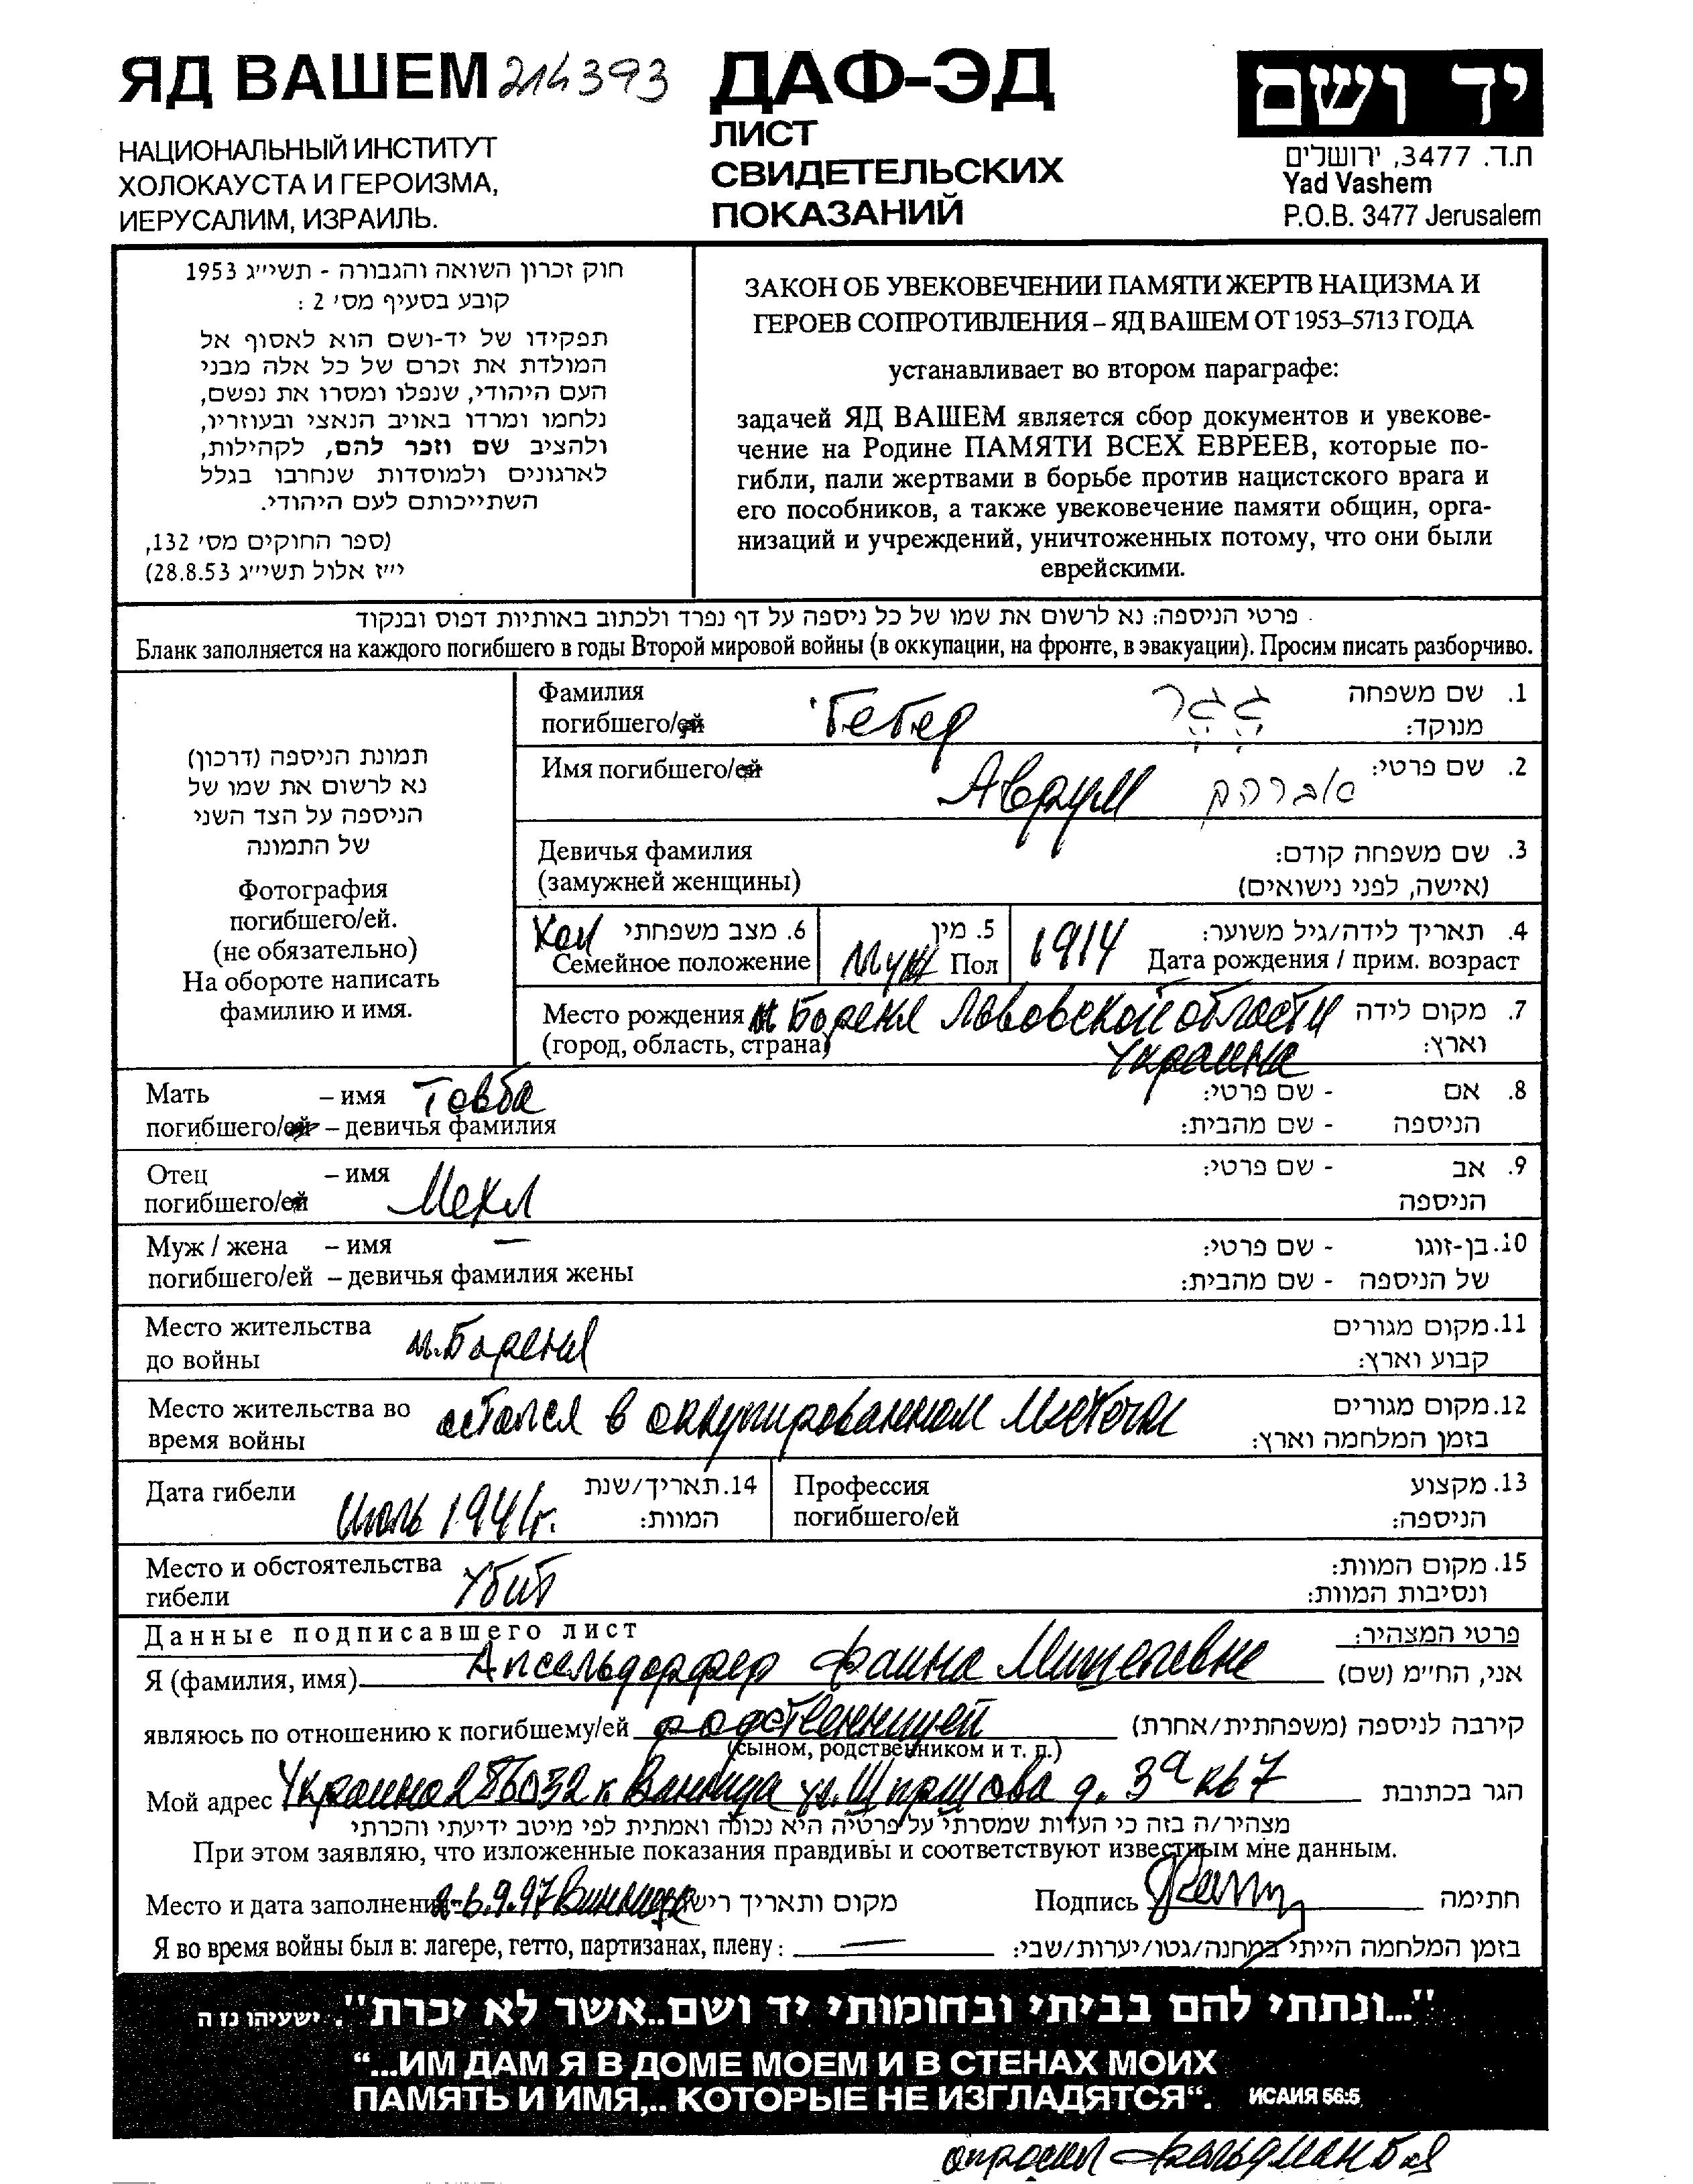 ЯД ВАШЕМ 214393
НАЦИОНАЛЬНЫЙ ИНСТИТУТ
ХОЛОКАУСТА И ГЕРОИЗМА,
ИЕРУСАЛИМ, ИЗРАИЛЬ.
ДАФ-ЭД
ЛИСТ
СВИДЕТЕЛЬСКИХ
ПОКАЗАНИЙ
יד ושם
ת.ד. 3477, ירושלים
Yad Vashem
P.O.B. 3477 Jerusalem
חוק זכרון השואה והגבורה - תשי״ג 1953
קובע בסעיף מס׳ 2 :
תפקידו של יד-ושם הוא לאסוף אל
המולדת את זכרם של כל אלה מבני
העם היהודי, שנפלו ומסרו את נפשם,
נלחמו ומרדו באויב הנאצי ובעוזריו,
ולהציב שם וזכר להם, לקהילות,
לארגונים ולמוסדות שנחרבו בגלל
השתייכותם לעם היהודי.
(ספר החוקים מס׳ 132,
י״ז אלול תשי״ג 28.8.53)
ЗАКОН ОБ УВЕКОВЕЧЕНИИ ПАМЯТИ ЖЕРТВ НАЦИЗМА И
ГЕРОЕВ СОПРОТИВЛЕНИЯ – ЯД ВАШЕМ ОТ 1953–5713 ГОДА
устанавливает во втором параграфе:
задачей ЯД ВАШЕМ является сбор документов и увекове-
чение на Родине ПАМЯТИ ВСЕХ ЕВРЕЕВ, которые по-
гибли, пали жертвами в борьбе против нацистского врага и
его пособников, а также увековечение памяти общин, орга-
низаций и учреждений, уничтоженных потому, что они были
еврейскими.
פרטי הניספה: נא לרשום את שמו של כל ניספה על דף נפרד ולכתוב באותיות דפוס ובנקוד
Бланк заполняется на каждого погибшего в годы Второй мировой войны (в оккупации, на фронте, в эвакуации). Просим писать разборчиво.
תמונת הניספה (דרכון)
נא לרשום את שמו של
הניספה על הצד השני
של התמונה
Фотография
погибшего/ей.
(не обязательно)
На обороте написать
фамилию и имя.
Фамилия Гегер גגר 1. שם משפחה
погибшего/ей מנוקד:
Имя погибшего/ей Аврум אברהם 2. שם פרטי:
Девичья фамилия 3. שם משפחה קודם:
(замужней женщины) (אישה, לפני נישואים)
Хол 6. מצב משפחתי 5. מין 1914 4. תאריך לידה/גיל משוער:
Семейное положение Муж Пол Дата рождения / прим. возраст
Место рождения м Бореня Львовской области 7. מקום לידה
(город, область, страна) Украина וארץ:
Мать – имя Товба - שם פרטי: 8. אם
погибшего/ей – девичья фамилия - שם מהבית: הניספה
Отец – имя Мехл - שם פרטי: 9. אב
погибшего/ей הניספה
Муж / жена – имя — - שם פרטי: 10. בן-זוגו
погибшего/ей – девичья фамилия жены - שם מהבית: של הניספה
Место жительства м. Бореня 11. מקום מגורים
до войны קבוע וארץ:
Место жительства во остался в оккупированном местечке 12. מקום מגורים
время войны בזמן המלחמה וארץ:
Дата гибели Июль 1941г. 14. תאריך/שנת המוות:
Профессия 13. מקצוע
погибшего/ей הניספה:
Место и обстоятельства Убит 15. מקום המוות:
гибели ונסיבות המוות:
Данные подписавшего лист פרטי המצהיר:
Я (фамилия, имя) Апсельдорфер Фаина Мишелевна אני, הח״מ (שם)
являюсь по отношению к погибшему/ей родственницей קירבה לניספה (משפחתית/אחרת)
(сыном, родственником и т. п.)
Мой адрес Украина 286032 г. Винница ул. д. 3а кв 7 הגר בכתובת
מצהיר/ה בזה כי העדות שמסרתי על פרטיה היא נכונה ואמתית לפי מיטב ידיעתי והכרתי
При этом заявляю, что изложенные показания правдивы и соответствуют известным мне данным.
Место и дата заполнения 6.9.97 Винница מקום ותאריך רישום Подпись חתימה
Я во время войны был в: лагере, гетто, партизанах, плену : — בזמן המלחמה הייתי במחנה/גטו/יערות/שבי:
"...ונתתי להם בביתי ובחומותי יד ושם..אשר לא יכרת". ישעיהו נו ה
“...ИМ ДАМ Я В ДОМЕ МОЕМ И В СТЕНАХ МОИХ
ПАМЯТЬ И ИМЯ,.. КОТОРЫЕ НЕ ИЗГЛАДЯТСЯ“. ИСАИЯ 56:5
опросил Фельдман